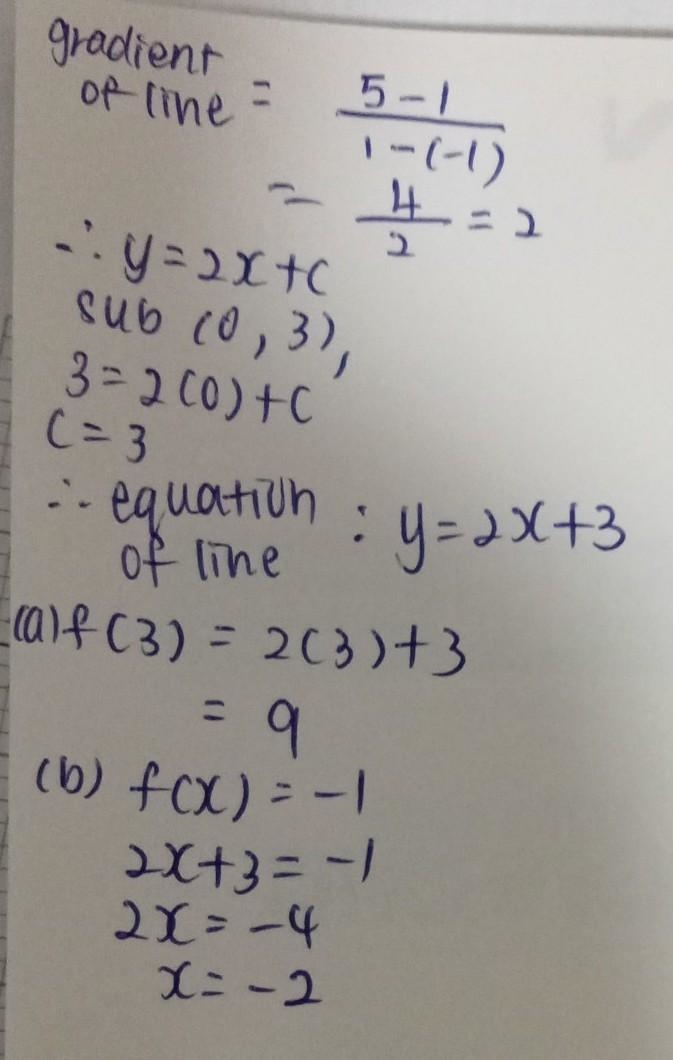 gradient
of line = 5 - 1 / 1 - (-1)
= 4 / 2 = 2
∴ y = 2x + c
sub (0, 3),
3 = 2(0) + c
c = 3
∴ equation of line : y = 2x + 3
(a) f(3) = 2(3) + 3
= 9
(b) f(x) = -1
2x + 3 = -1
2x = -4
x = -2